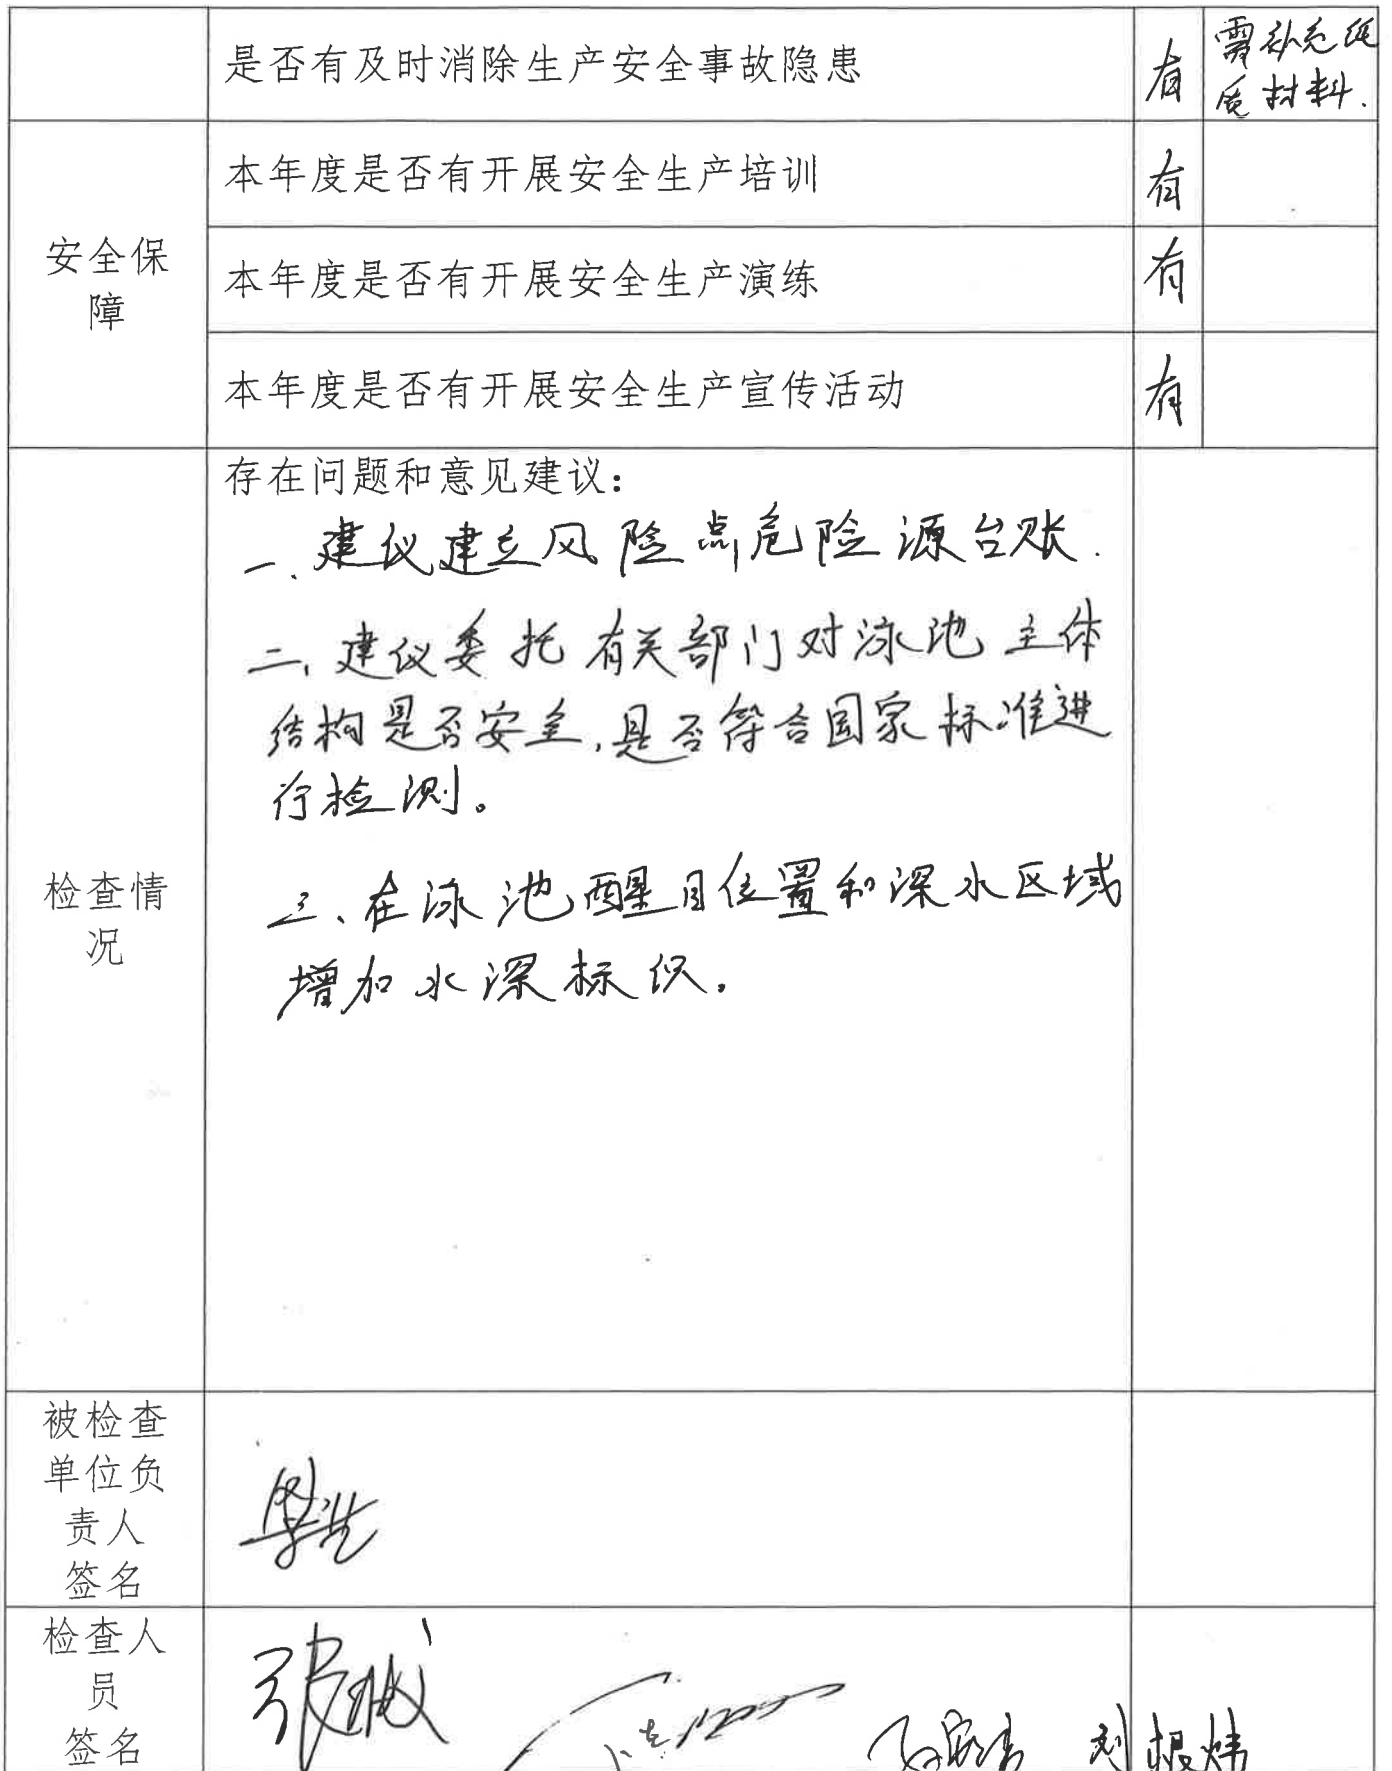 是否有及时消除生产安全事故隐患 有 需补充纸
质材料.
安全保
障
本年度是否有开展安全生产培训 有
本年度是否有开展安全生产演练 有
本年度是否有开展安全生产宣传活动 有
检查情
况
存在问题和意见建议：
一、建议建立风险点危险源台账.
二、建议委托有关部门对泳池主体
结构是否安全,是否符合国家标准进
行检测。
三、在泳池醒目位置和深水区域
增加水深标识。
被检查
单位负
责人
签名
检查人
员
签名
刘根炜